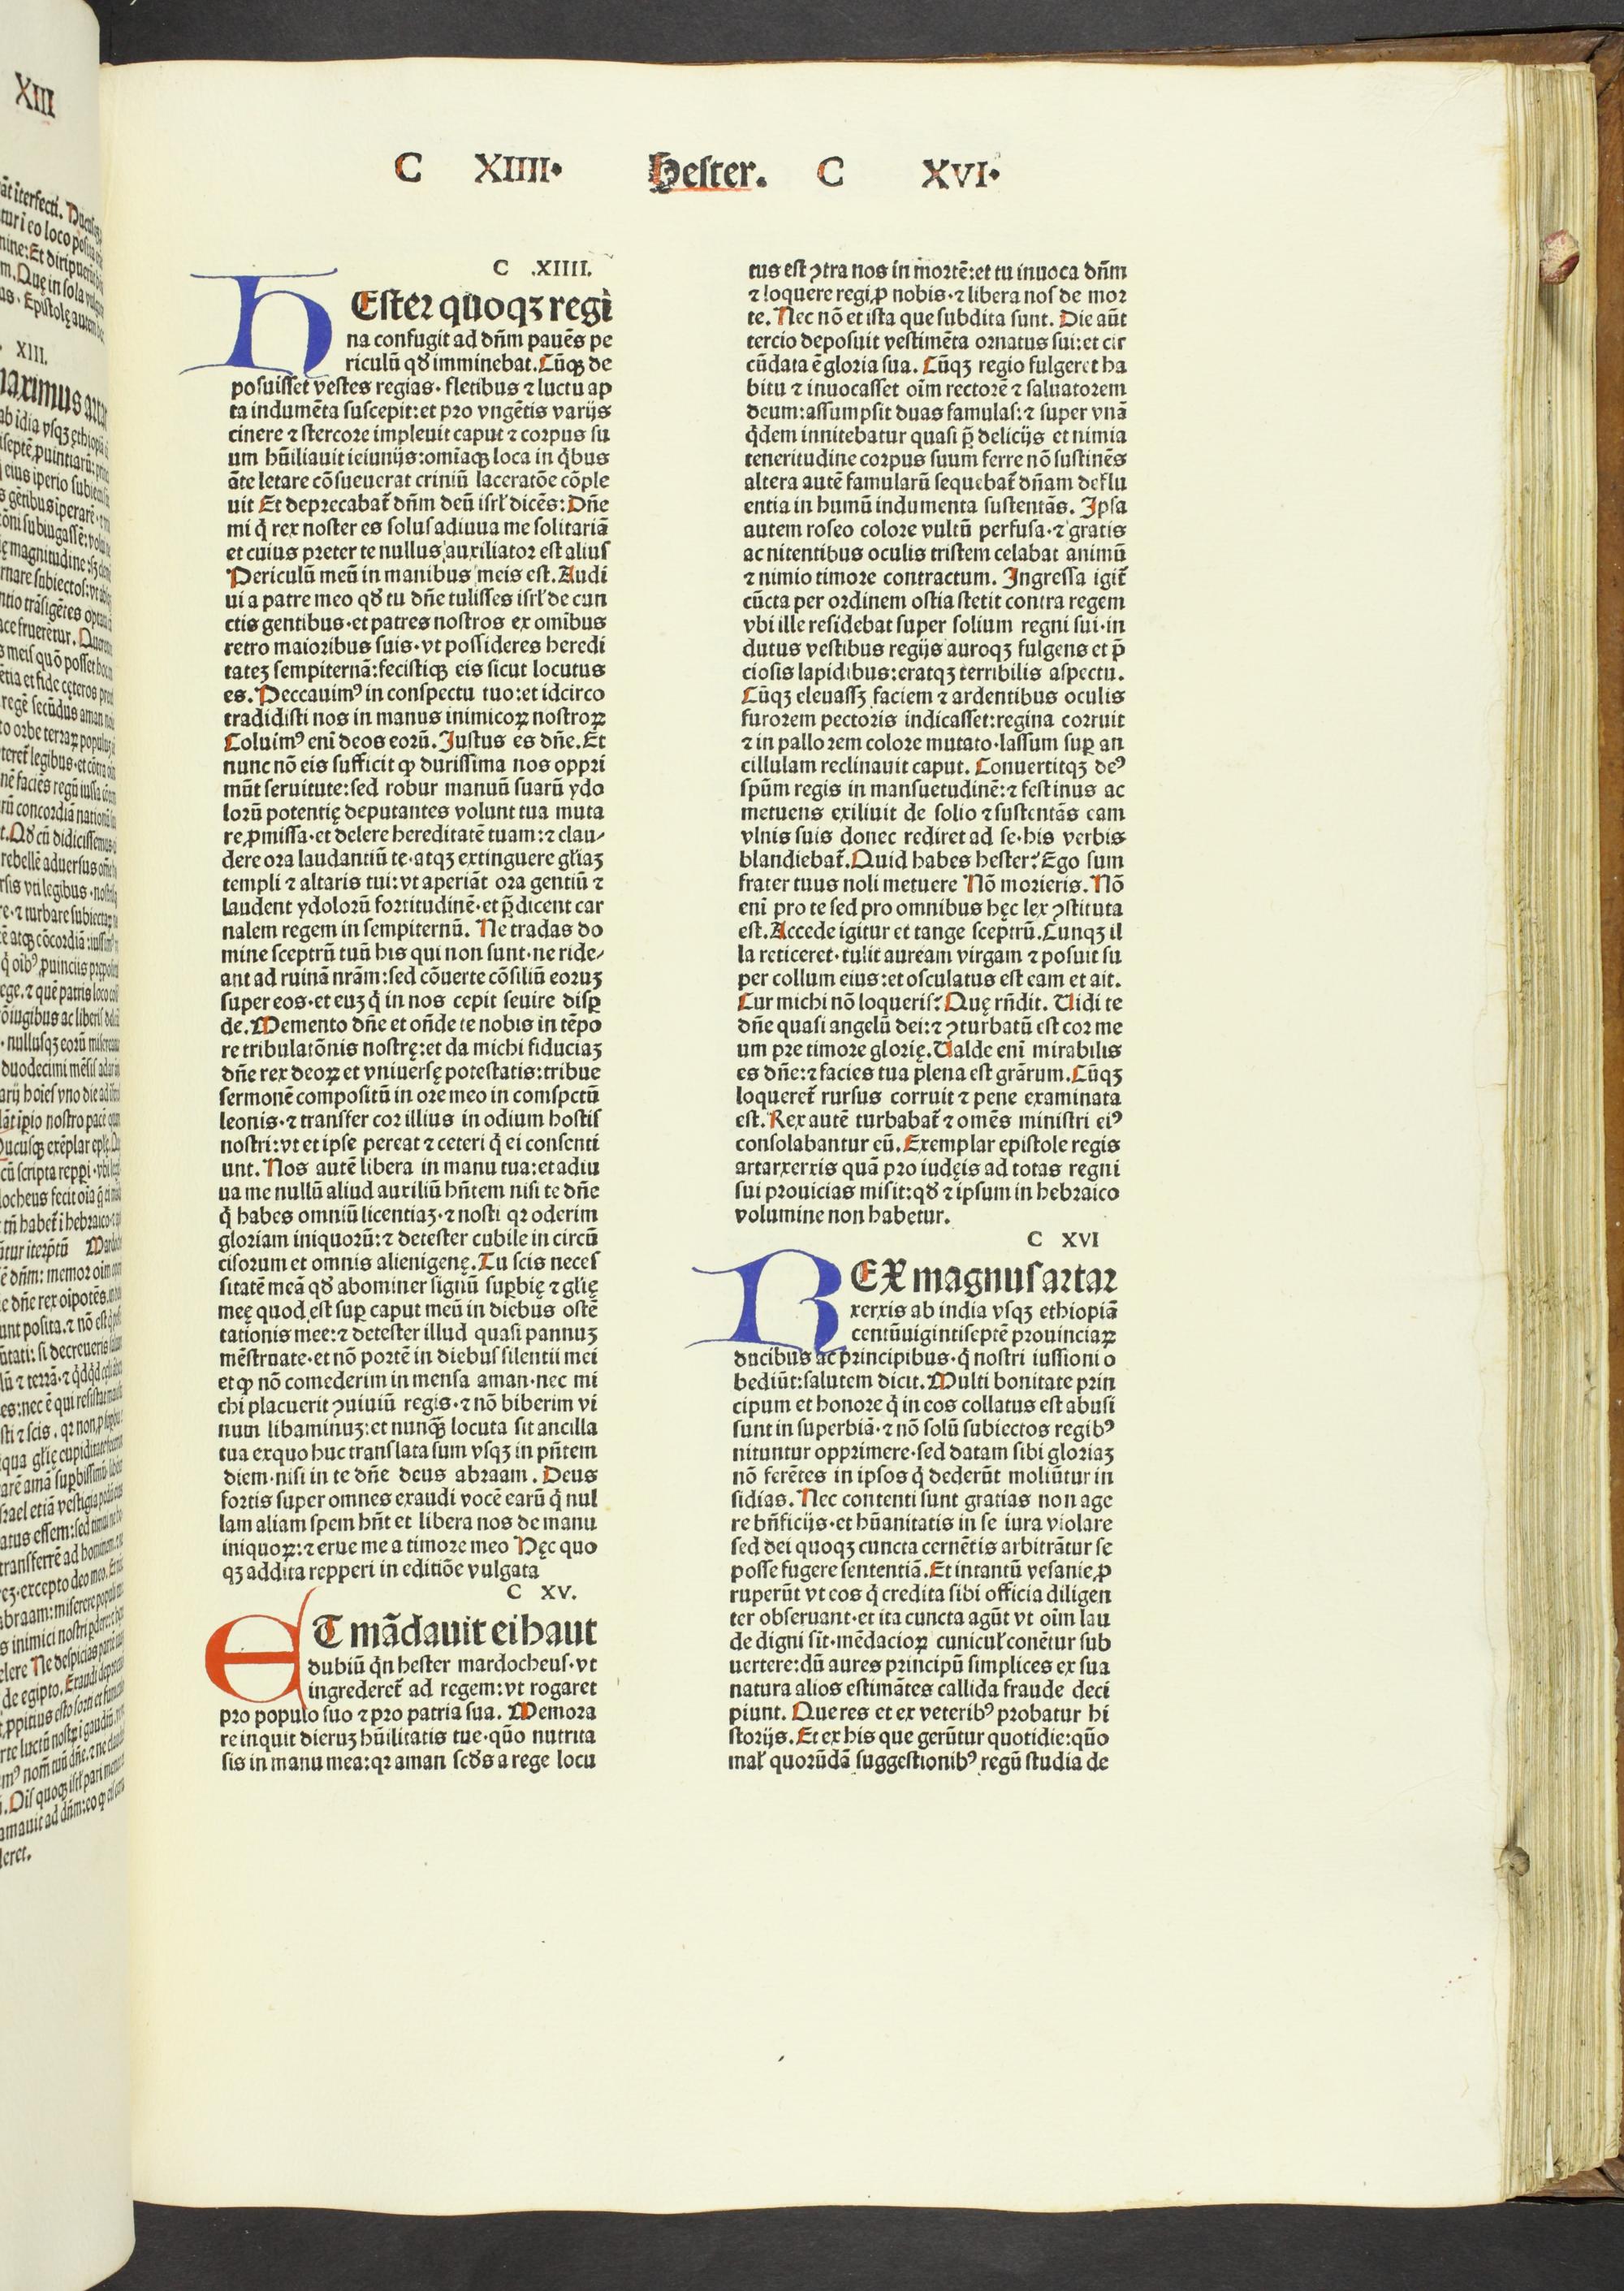 C XIIII. Hester. C XVI.
C .XIIII.
HEster quoqꝫ regi
na confugit ad dñm pauẽs pe
riculũ qď imminebat. Cũqꝫ de
posuisset vestes regias. fletibus ⁊ luctu ap
ta indumẽta suscepit: et pro vngẽtis varijs
cinere ⁊ stercore impleuit caput ⁊ corpus su
um hũiliauit ieiunijs: omĩaqꝫ loca in q̃bus
ãte letare cõsueuerat criniũ laceratõe cõple
uit Et deprecabat᷑ dñm deũ isrł dicẽs: Dñe
mi q̃ rex noster es solus adiuua me solitariã
et cuius preter te nullus auxiliator est alius
Periculũ meũ in manibus meis est. Audi
ui a patre meo qď tu dñe tulisses isrł de cun
ctis gentibus. et patres nostros ex omĩbus
retro maioribus suis. vt possideres heredi
tateꝫ sempiternã: fecistiqꝫ eis sicut locutus
es. Peccauimꝰ in conspectu tuo: et idcirco
tradidisti nos in manus inimicoꝝ nostroꝝ
Coluimꝰ eni deos eorũ. Justus es dñe. Et
nunc nõ eis sufficit ꝙ durissima nos oppri
mũt seruitute: sed robur manuũ suarũ ydo
lorũ potentię deputantes volunt tua muta
re ꝓmissa. et delere hereditatẽ tuam: ⁊ clau⸗
dere ora laudantiũ te. atqꝫ extinguere głiaꝫ
templi ⁊ altaris tui: vt aperiãt ora gentiũ ⁊
laudent ydolorũ fortitudinẽ. et p̃dicent car
nalem regem in sempiternũ. Ne tradas do
mine sceptrũ tuũ his qui non sunt. ne ride⸗
ant ad ruinã nr̃am: sed cõuerte cõsiliũ eoruꝫ
super eos. et euꝫ q̃ in nos cepit seuire disꝑ
de. Memento dñe et oñde te nobis in tẽpo
re tribulatõnis nostrę: et da michi fiduciaꝫ
dñe rex deoꝝ et vniuersę potestatis: tribue
sermonẽ compositũ in ore meo in comspctũ
leonis. ⁊ transfer cor illius in odium hostis
nostri: vt et ipse pereat ⁊ ceteri q̃ ei consenti
unt. Nos autẽ libera in manu tua: et adiu
ua me nullũ aliud auxiliũ hñtem nisi te dñe
q̃ habes omniũ licentiaꝫ. ⁊ nosti qꝛ oderim
gloriam iniquorũ: ⁊ detester cubile in circũ
cisorum et omnis alienigenę. Tu scis neces
sitatẽ meã qď abominer signũ suꝑbię ⁊ głię
meę quod est suꝑ caput meũ in diebus ostẽ
tationis mee: ⁊ detester illud quasi pannuꝫ
mẽstruate. et nõ portẽ in diebus silentii mei
et ꝙ nõ comederim in mensa aman. nec mi
chi placuerit ꝯuiuiũ regis. ⁊ nõ biberim vi
num libaminuꝫ: et nunq̃ꝫ locuta sit ancilla
tua ex quo huc translata sum vsqꝫ in pñtem
diem. nisi in te dñe deus abraam. Deus
fortis super omnes exaudi vocẽ earũ q̃ nul
lam aliam spem hñt et libera nos de manu
iniquoꝝ: ⁊ erue me a timore meo Nęc quo
qꝫ addita repperi in editiõe vulgata
C XV.
ET mãdauit ei haut
dubiũ q̃n hester mardocheus. vt
ingrederet᷑ ad regem: vt rogaret
pro populo suo ⁊ pro patria sua. Memora
re inquit dieruꝫ hũilitatis tue. quõ nutrita
sis in manu mea: qꝛ aman scďs a rege locu
tus est ꝯtra nos in mortẽ: et tu inuoca dñm
⁊ loquere regi ꝓ nobis. ⁊ libera nos de mor
te. Nec nõ et ista que subdita sunt. Die aũt
tercio deposuit vestimẽta ornatus sui: et cir
cũdata ẽ gloria sua. Cũqꝫ regio fulgeret ha
bitu ⁊ inuocasset oĩm rectorẽ ⁊ saluatorem
deum: assumpsit duas famulas: ⁊ super vnã
q̃dem innitebatur quasi p̃ delicijs et nimia
teneritudine corpus suum ferre nõ sustinẽs
altera autẽ famularũ sequebat᷑ dñam deflu
entia in humũ indumenta sustentãs. Ipsa
autem roseo colore vultũ perfusa. ⁊ gratis
ac nitentibus oculis tristem celabat animũ
⁊ nimio timore contractum. Ingressa igit᷑
cũcta per ordinem ostia stetit contra regem
vbi ille residebat super solium regni sui. in
dutus vestibus regijs auroqꝫ fulgens et p̃
ciosis lapidibus: eratqꝫ terribilis aspectu.
Cũqꝫ eleuassꝫ faciem ⁊ ardentibus oculis
furorem pectoris indicasset: regina corruit
⁊ in pallorem colore mutato. lassum suꝑ an
cillulam reclinauit caput. Conuertitqꝫ deꝰ
spũm regis in mansuetudinẽ: ⁊ festinus ac
metuens exiliuit de solio ⁊ sustentãs eam
vlnis suis donec rediret ad se. his verbis
blandiebat᷑. Quid habes hester? Ego sum
frater tuus noli metuere Nõ morieris. Nõ
eni pro te sed pro omnibus hęc lex ꝯstituta
est. Accede igitur et tange sceptrũ. Cunqꝫ il
la reticeret. tulit auream virgam ⁊ posuit su
per collum eius: et osculatus est eam et ait.
Cur michi nõ loqueris? Quę rñdit. Uidi te
dñe quasi angelũ dei: ⁊ ꝯturbatũ est cor me
um pre timore glorię. Ualde eni mirabilis
es dñe: ⁊ facies tua plena est gr̃arum. Cũqꝫ
loqueret᷑ rursus corruit ⁊ pene examinata
est. Rex autẽ turbabat᷑ ⁊ omẽs ministri eiꝰ
consolabantur eũ. Exemplar epistole regis
artarxerxis quã pro iudęis ad totas regni
sui prouicias misit: qď ⁊ ipsum in hebraico
volumine non habetur.
C XVI
REX magnus artar
xerxis ab india vsqꝫ ethiopiã
centũuigintiseptẽ prouinciaꝝ
ducibus ac principibus. q̃ nostri iussioni o
bediũt: salutem dicit. Multi bonitate prin
cipum et honore q̃ in eos collatus est abusi
sunt in superbiã. ⁊ nõ solũ subiectos regibꝰ
nituntur opprimere. sed datam sibi gloriaꝫ
nõ ferẽtes in ipsos q̃ dederũt moliũtur in
sidias. Nec contenti sunt gratias non age
re bñficijs. et hũanitatis in se iura violare
sed dei quoqꝫ cuncta cernẽtis arbitrãtur se
posse fugere sententiã. Et intantũ vesanie ꝓ
ruperũt vt eos q̃ credita sibi officia diligen
ter obseruant. et ita cuncta agũt vt oĩm lau
de digni sit. mẽdacioꝝ cunicuł conẽtur sub
uertere: dũ aures principũ simplices ex sua
natura alios estimãtes callida fraude deci
piunt. Que res et ex veteribꝰ probatur hi
storijs. Et ex his que gerũtur quotidie: quõ
mał quorũdã suggestionibꝰ regũ studia de